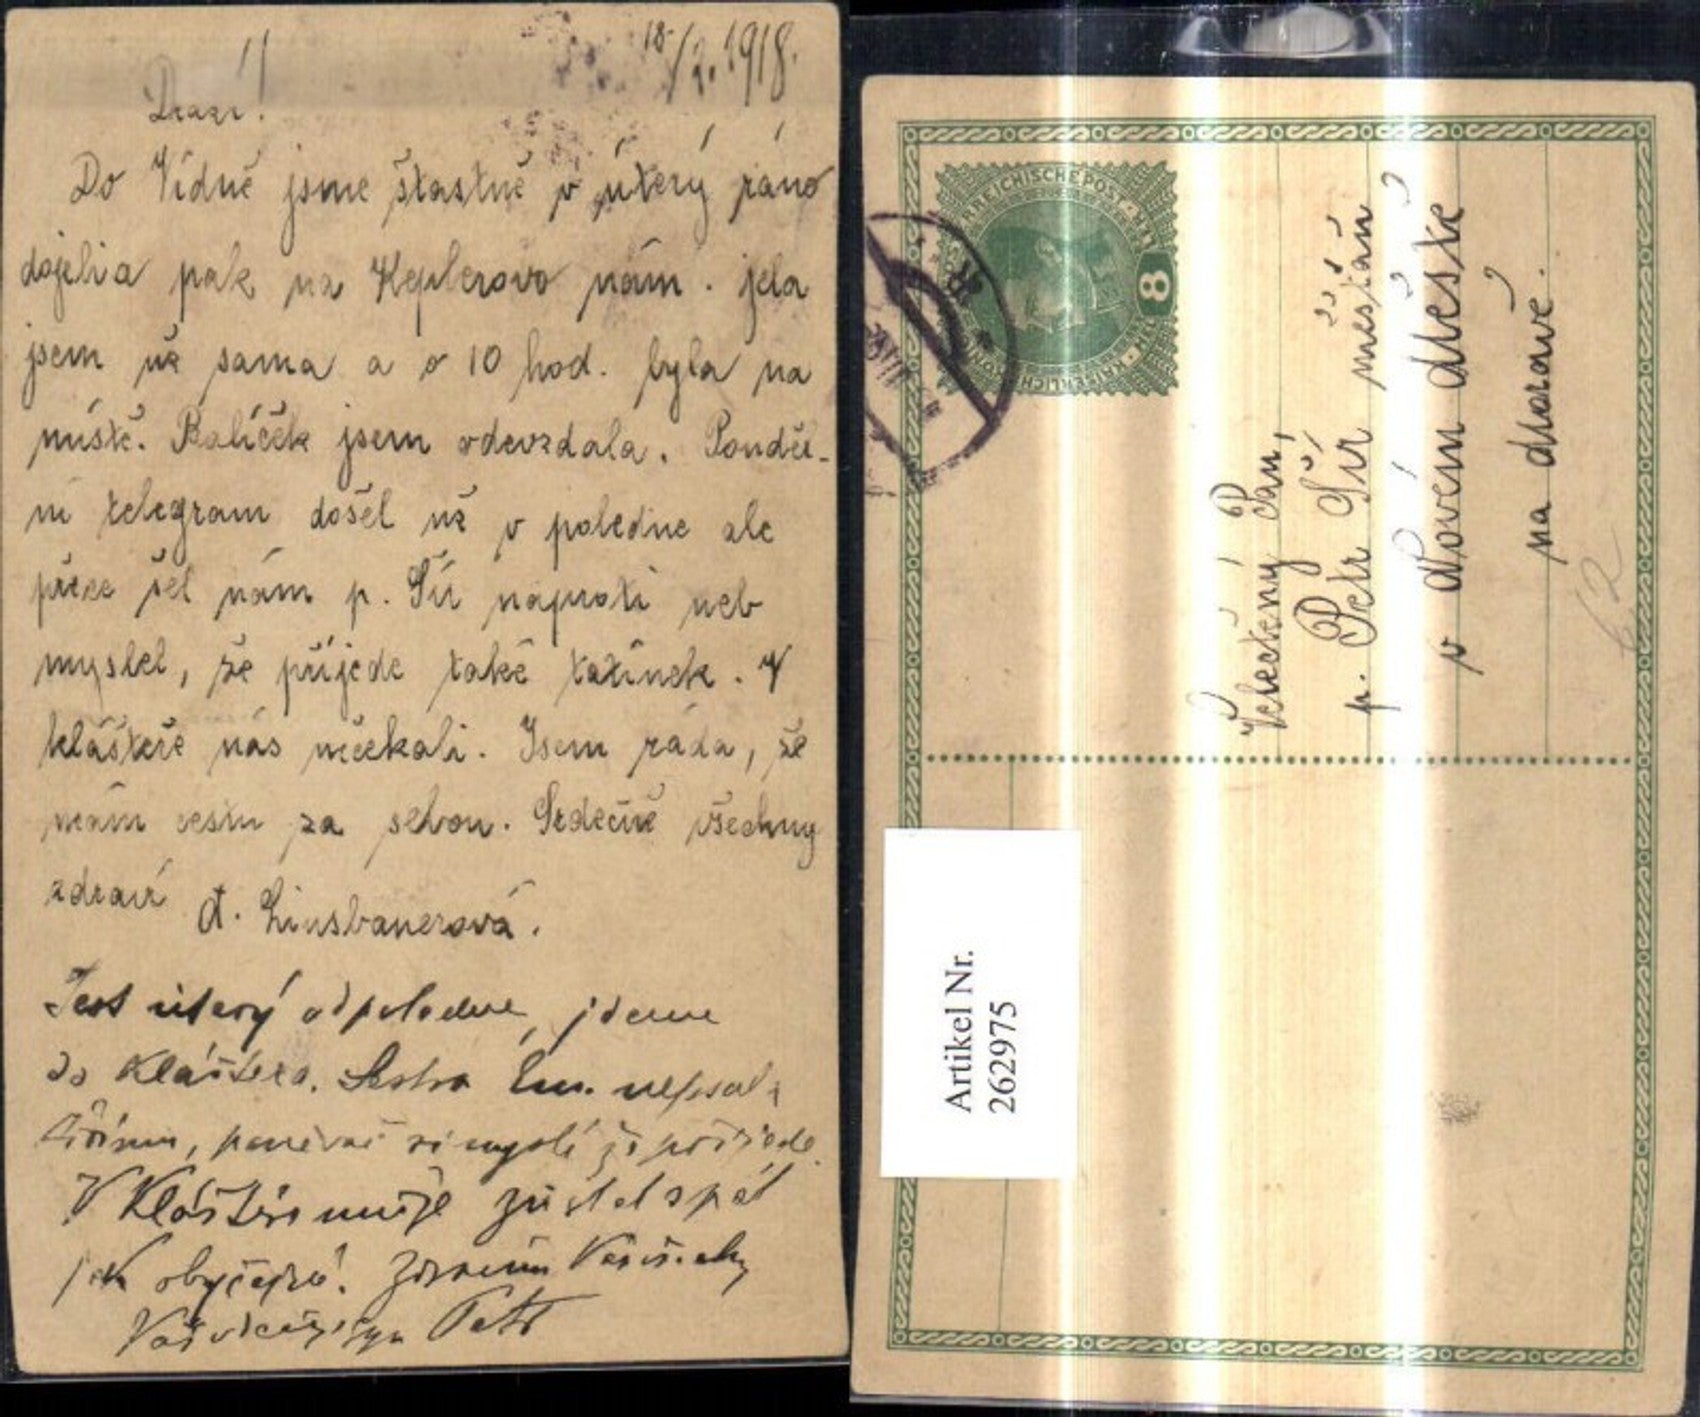 18/2. 1918.
Drazí!
Do Vídně jsme štastně v úterý ráno
dojeli a pak na Keplerovo nám. jela
jsem už sama a o 10 hod. byla na
místě. Balíček jsem odevzdala. Ponděl-
ní telegram došel už v poledne ale
přece šel nám p. Šír naproti neb
myslel, že přijede také tatínek. V
klášteře nás nečekali. Jsem ráda, že
mám cestu za sebou. Srdečně všechny
zdraví A. Linsbauerová.
Jest úterý odpoledne, jdeme
do kláštera. Sestra Em. nepsala
, poněvač si myslí že přijede.
V Klášteře může zůstat spát
jak obyčejně. Zdravím Vás všechny
Váš vděčný syn Petr
ÖSTERREICHISCHE POST
KAISERLICH KÖNIGL
8
Velectěný Pan,
P
p. Petr Šír měšťan
v Novém Městě
na Moravě.
62
Artikel Nr.
262975